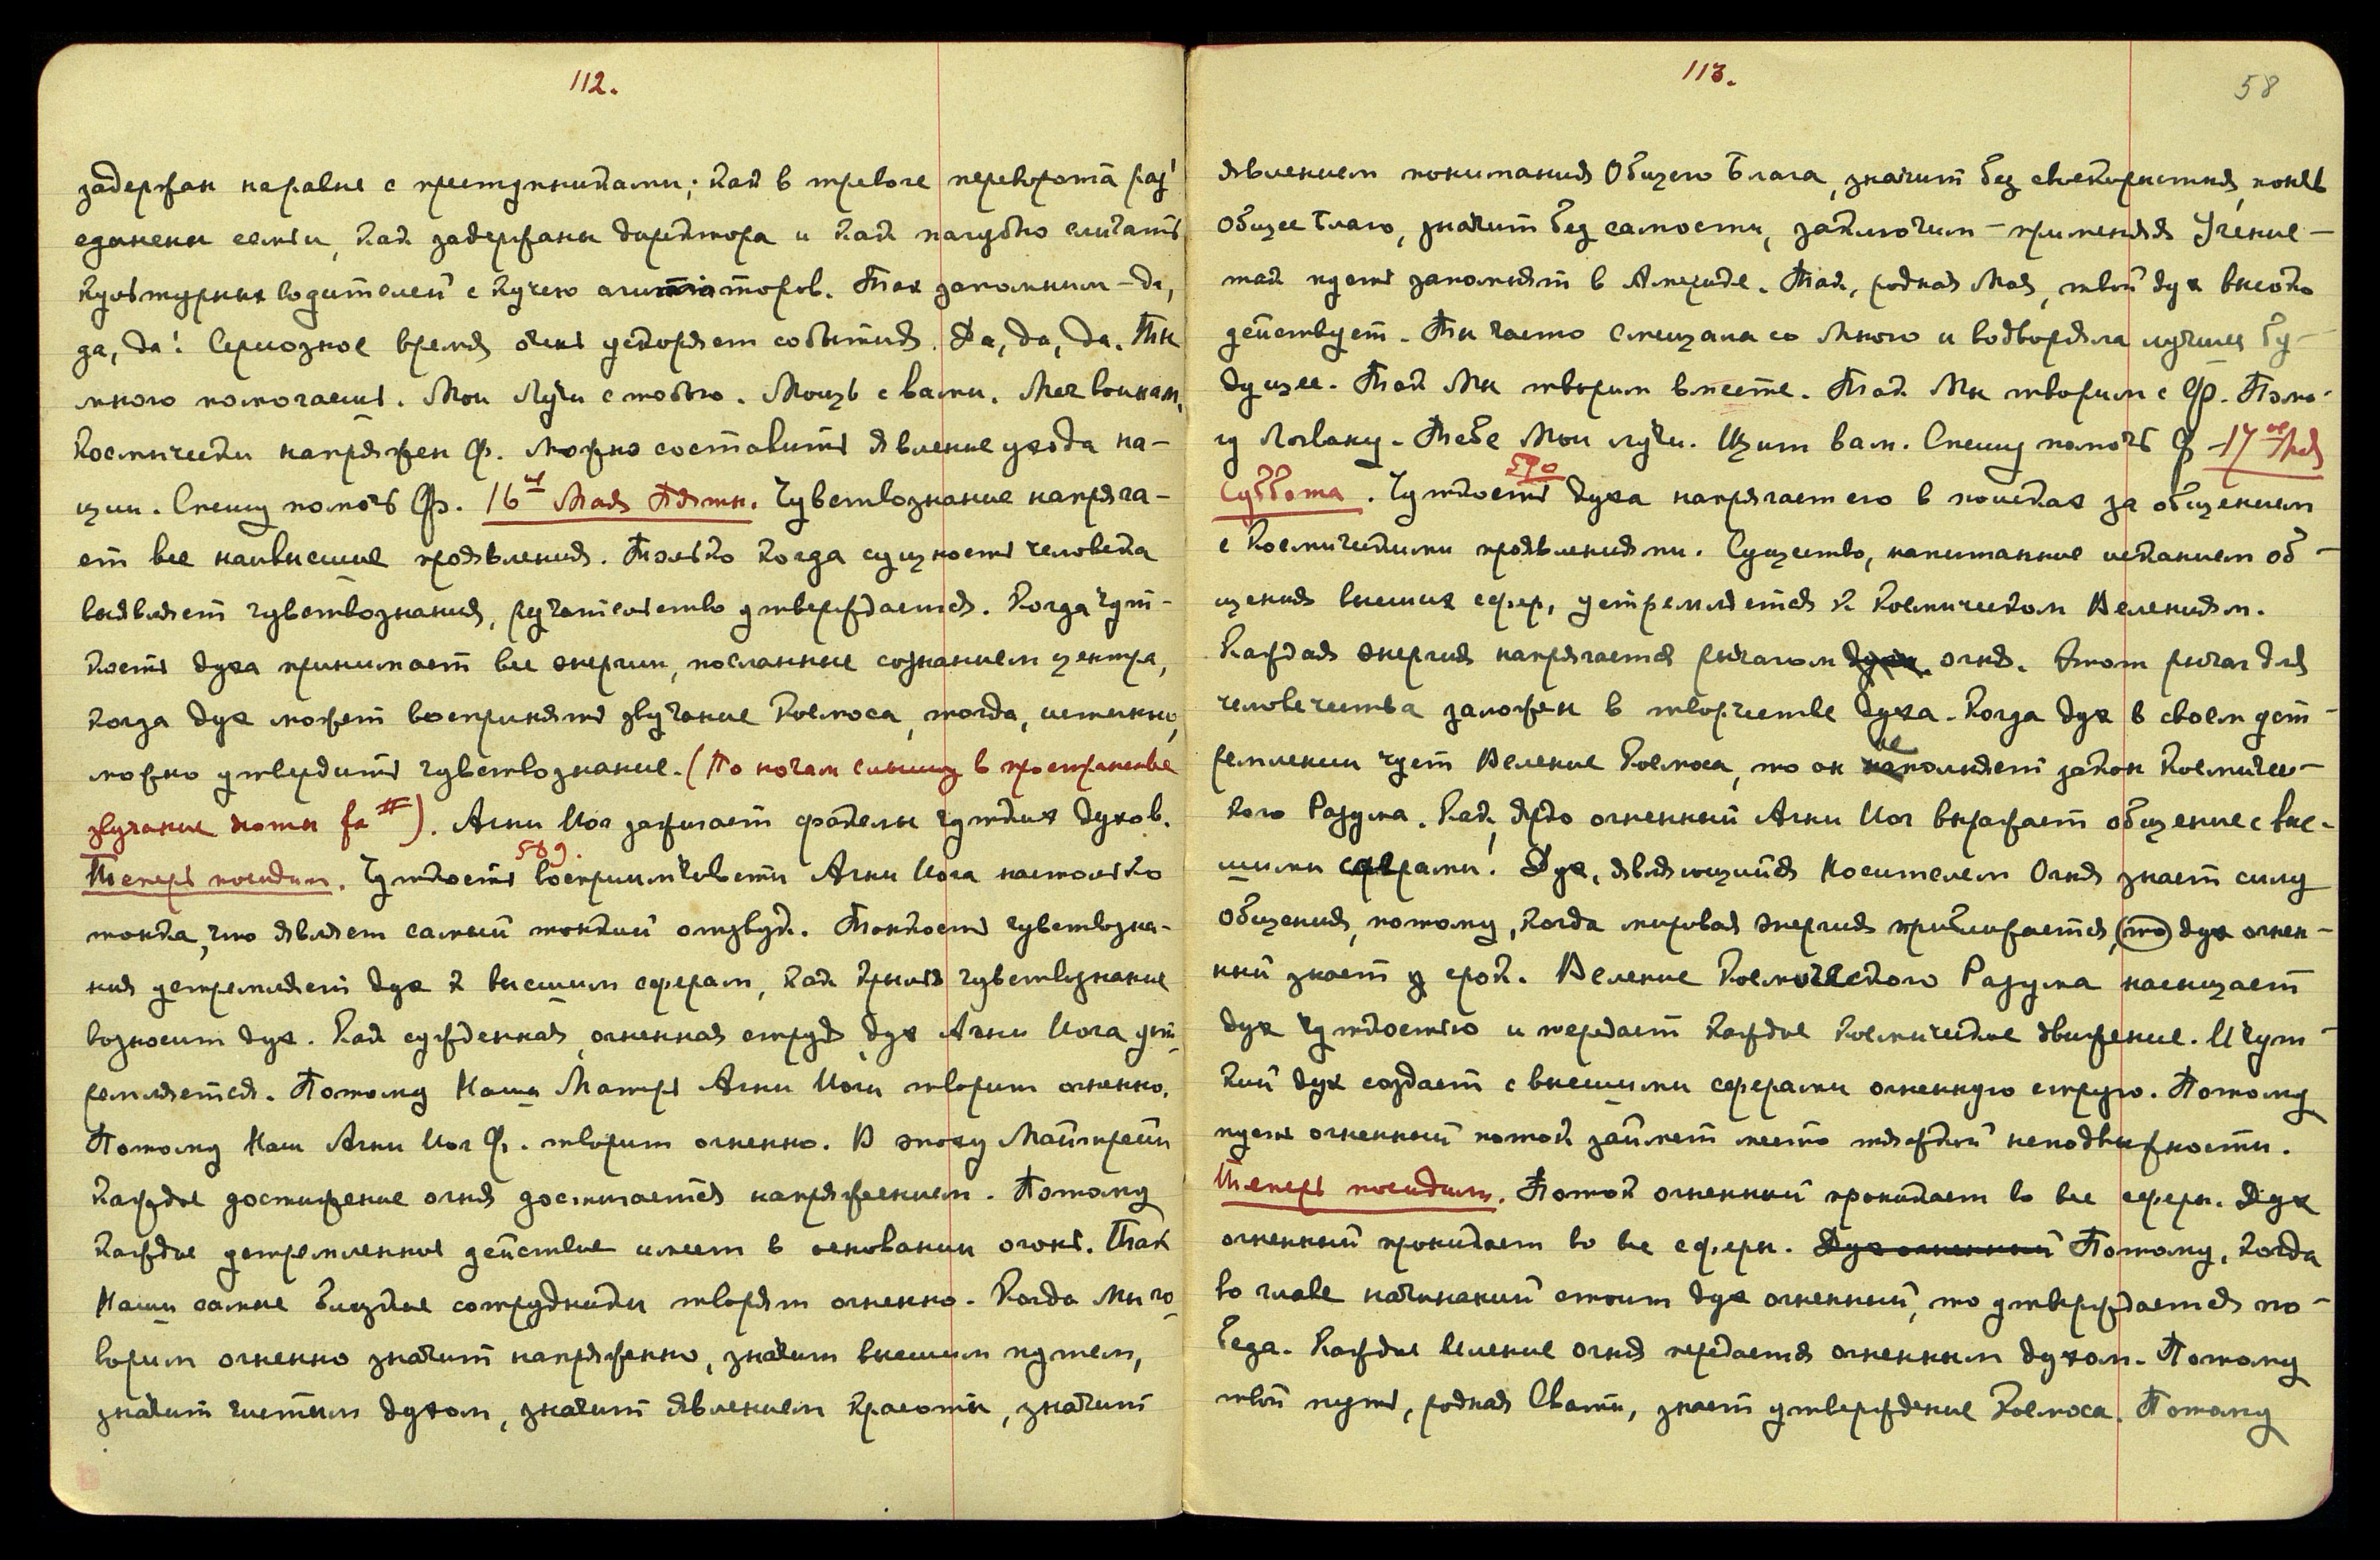 112.
задержан наравне с преступниками; как в тревоге переворота раз'
единены семьи, как задержаны директора и как пагубно считать
культурных водителей с кучею агитаторов. Так запомним – да,
да, да! Серьозное время очень ускоряет события. Да, да, да. Ты
много помогаешь. Мои Лучи с тобою. Мощь с вами. Меч воинам.
Космически напряжен Ф. Можно составить явление ухода на-
ции. Спешу помочь Ф. 16ый Мая Пятн. Чувствознание напряга-
ет все наивысшие проявления. Только когда сущность человека
выявляет чувствознания, ручательство утверждается. Когда чут-
кость духа принимает все энергии, посланные сознанием центра,
когда дух может воспринять звучание Космоса, тогда, истинно,
можно утвердить чувствознание. (По ночам слышу в пространстве
звучание ноты fa #). Агни Иог зажигает факелы чутких духов.
589.
Теперь посидим. Чуткость восприимчивости Агни Иога настолько
тонка, что являет самый тонкий отзвук. Тонкость чувствозна-
ния устремляет дух к высшим сферам, как крылья чувствознание
возносит дух. Как сужденная, огненная струя, дух Агни Иога уст-
ремляется. Потому Наша Матерь Агни Иоги творит огненно.
Потому Наш Агни Иог Ф. творит огненно. В эпоху Майтрейи
каждое достижение огня достигается напряжением. Потому
каждое устремленное действие имеет в основании огонь. Так
Наши самые близкие сотрудники творят огненно. Когда Мы го-
ворим огненно значит напряженно, значит высшим путем,
значит чистым духом, значит явлением красоты, значит
113.
58
явлением понимания Общего Блага, значит без своекорыстия, поняв
Общее Благо, значит без самости, заключим – применяя Учение –
так пусть запомнят в Америке. Так, родная Моя, твой дух высоко
действует. Ты часто смещала со Мною и водворяла лучшее бу-
дущее. Так Мы творим вместе. Так Мы творим с Ф. Помо-
гу Логвану. Тебе Мои лучи. Щит вам. Спешу помочь Ф – 17ое Мая
590
Суббота. Чуткость духа напрягает его в поисках за общением
с космическими проявлениями. Существо, напитанное исканием об-
щения высших сфер, устремляется к Космическим Велениям.
Каждая энергия напрягается рычагом духа огня. Этот рычаг для
человечества заложен в творчестве духа. Когда дух в своем уст-
ремлении чует Веление Космоса, то он исполняет закон Космичес-
кого Разума. Как ярко огненный Агни Иог выражает общение с выс-
шими сферами! Дух, являющийся Носителем Огня знает силу
Общения, потому, когда мировая энергия приближается, (то) дух огнен-
ный знает срок. Веление Космического Разума насыщает
дух чуткостью и передает каждое космическое движение. И чут-
кий дух создает с высшими сферами огненную струю. Потому
пусть огненный поток займет место тяжкой неподвижности.
Теперь посидим. Поток огненный проникает во все сферы. Дух
огненный проникает во все сферы. Дух огненный Потому, когда
во главе начинаний стоит дух огненный, то утверждается по-
беда. Каждое веление огня передается огненным духом. Потому
твой путь, родная Свати, знает утверждение Космоса. Потому